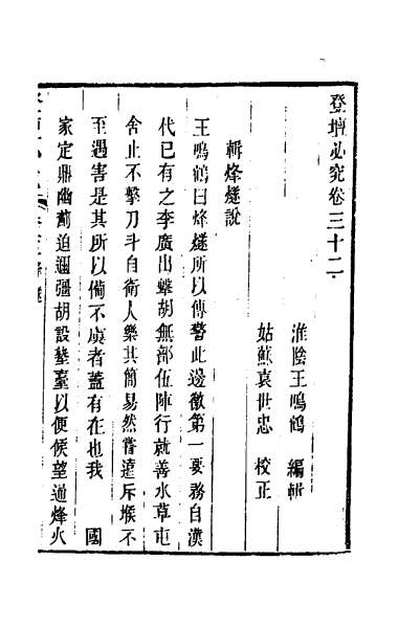 登壇必究卷三十二
淮陰王鳴鶴 編輯
姑蘇袁世忠 校正
輯烽燧說
王鳴鶴曰烽燧所以傳警此邊徼第一要務自漢
代已有之李廣出擊胡無部伍陣行就善水草屯
舍止不擊刀斗自衛人樂其簡易然嘗遠斥堠不
至遇害是其所以備不虞者蓋有在也我 國
家定鼎幽薊迫邇彊胡設墪臺以便候望通烽火